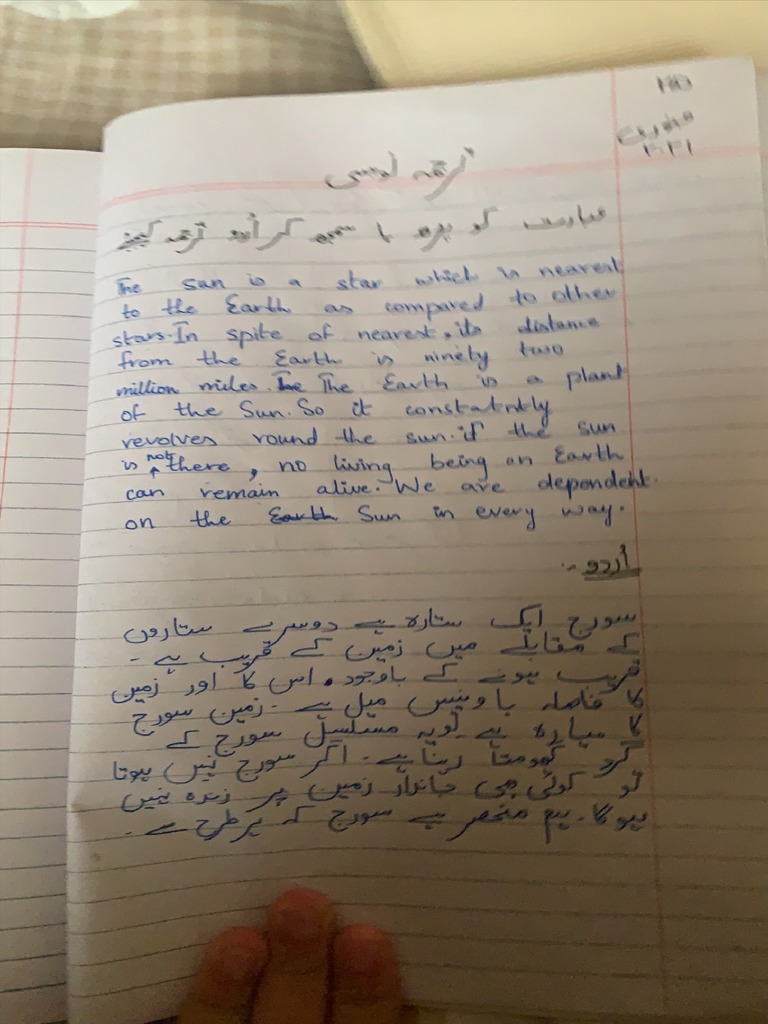 ۲۰۲۱
ترجمہ نویسی
عبارت کو پڑھ یا سمجھ کر اُردو ترجمہ کیجئے
The sun is a star which is nearest
to the Earth as compared to other
stars. In spite of nearest, its distance
from the Earth is ninety two
million miles. The The Earth is a plant
of the Sun. So it constatntly
revolves round the sun. if the sun
is not there, no living being on Earth
can remain alive. We are dependent
on the Earth Sun in every way.
اُردو:-
سورج ایک ستارہ ہے دوسرے ستاروں
کے مقابلے میں زمین کے قریب ہے۔
قریب ہونے کے باوجود، اس کا اور زمین
کا فاصلہ باونیس میل ہے۔ زمین سورج
کا سیارہ ہے لویہ مسلسل سورج کے
گرد گھومتا رہتا ہے۔ اگر سورج نہیں ہوتا
تو کوئی بھی جاندار زمین پر زندہ نہیں
ہوگا۔ ہم منحصر ہے سورج کہ ہر طرح سے۔